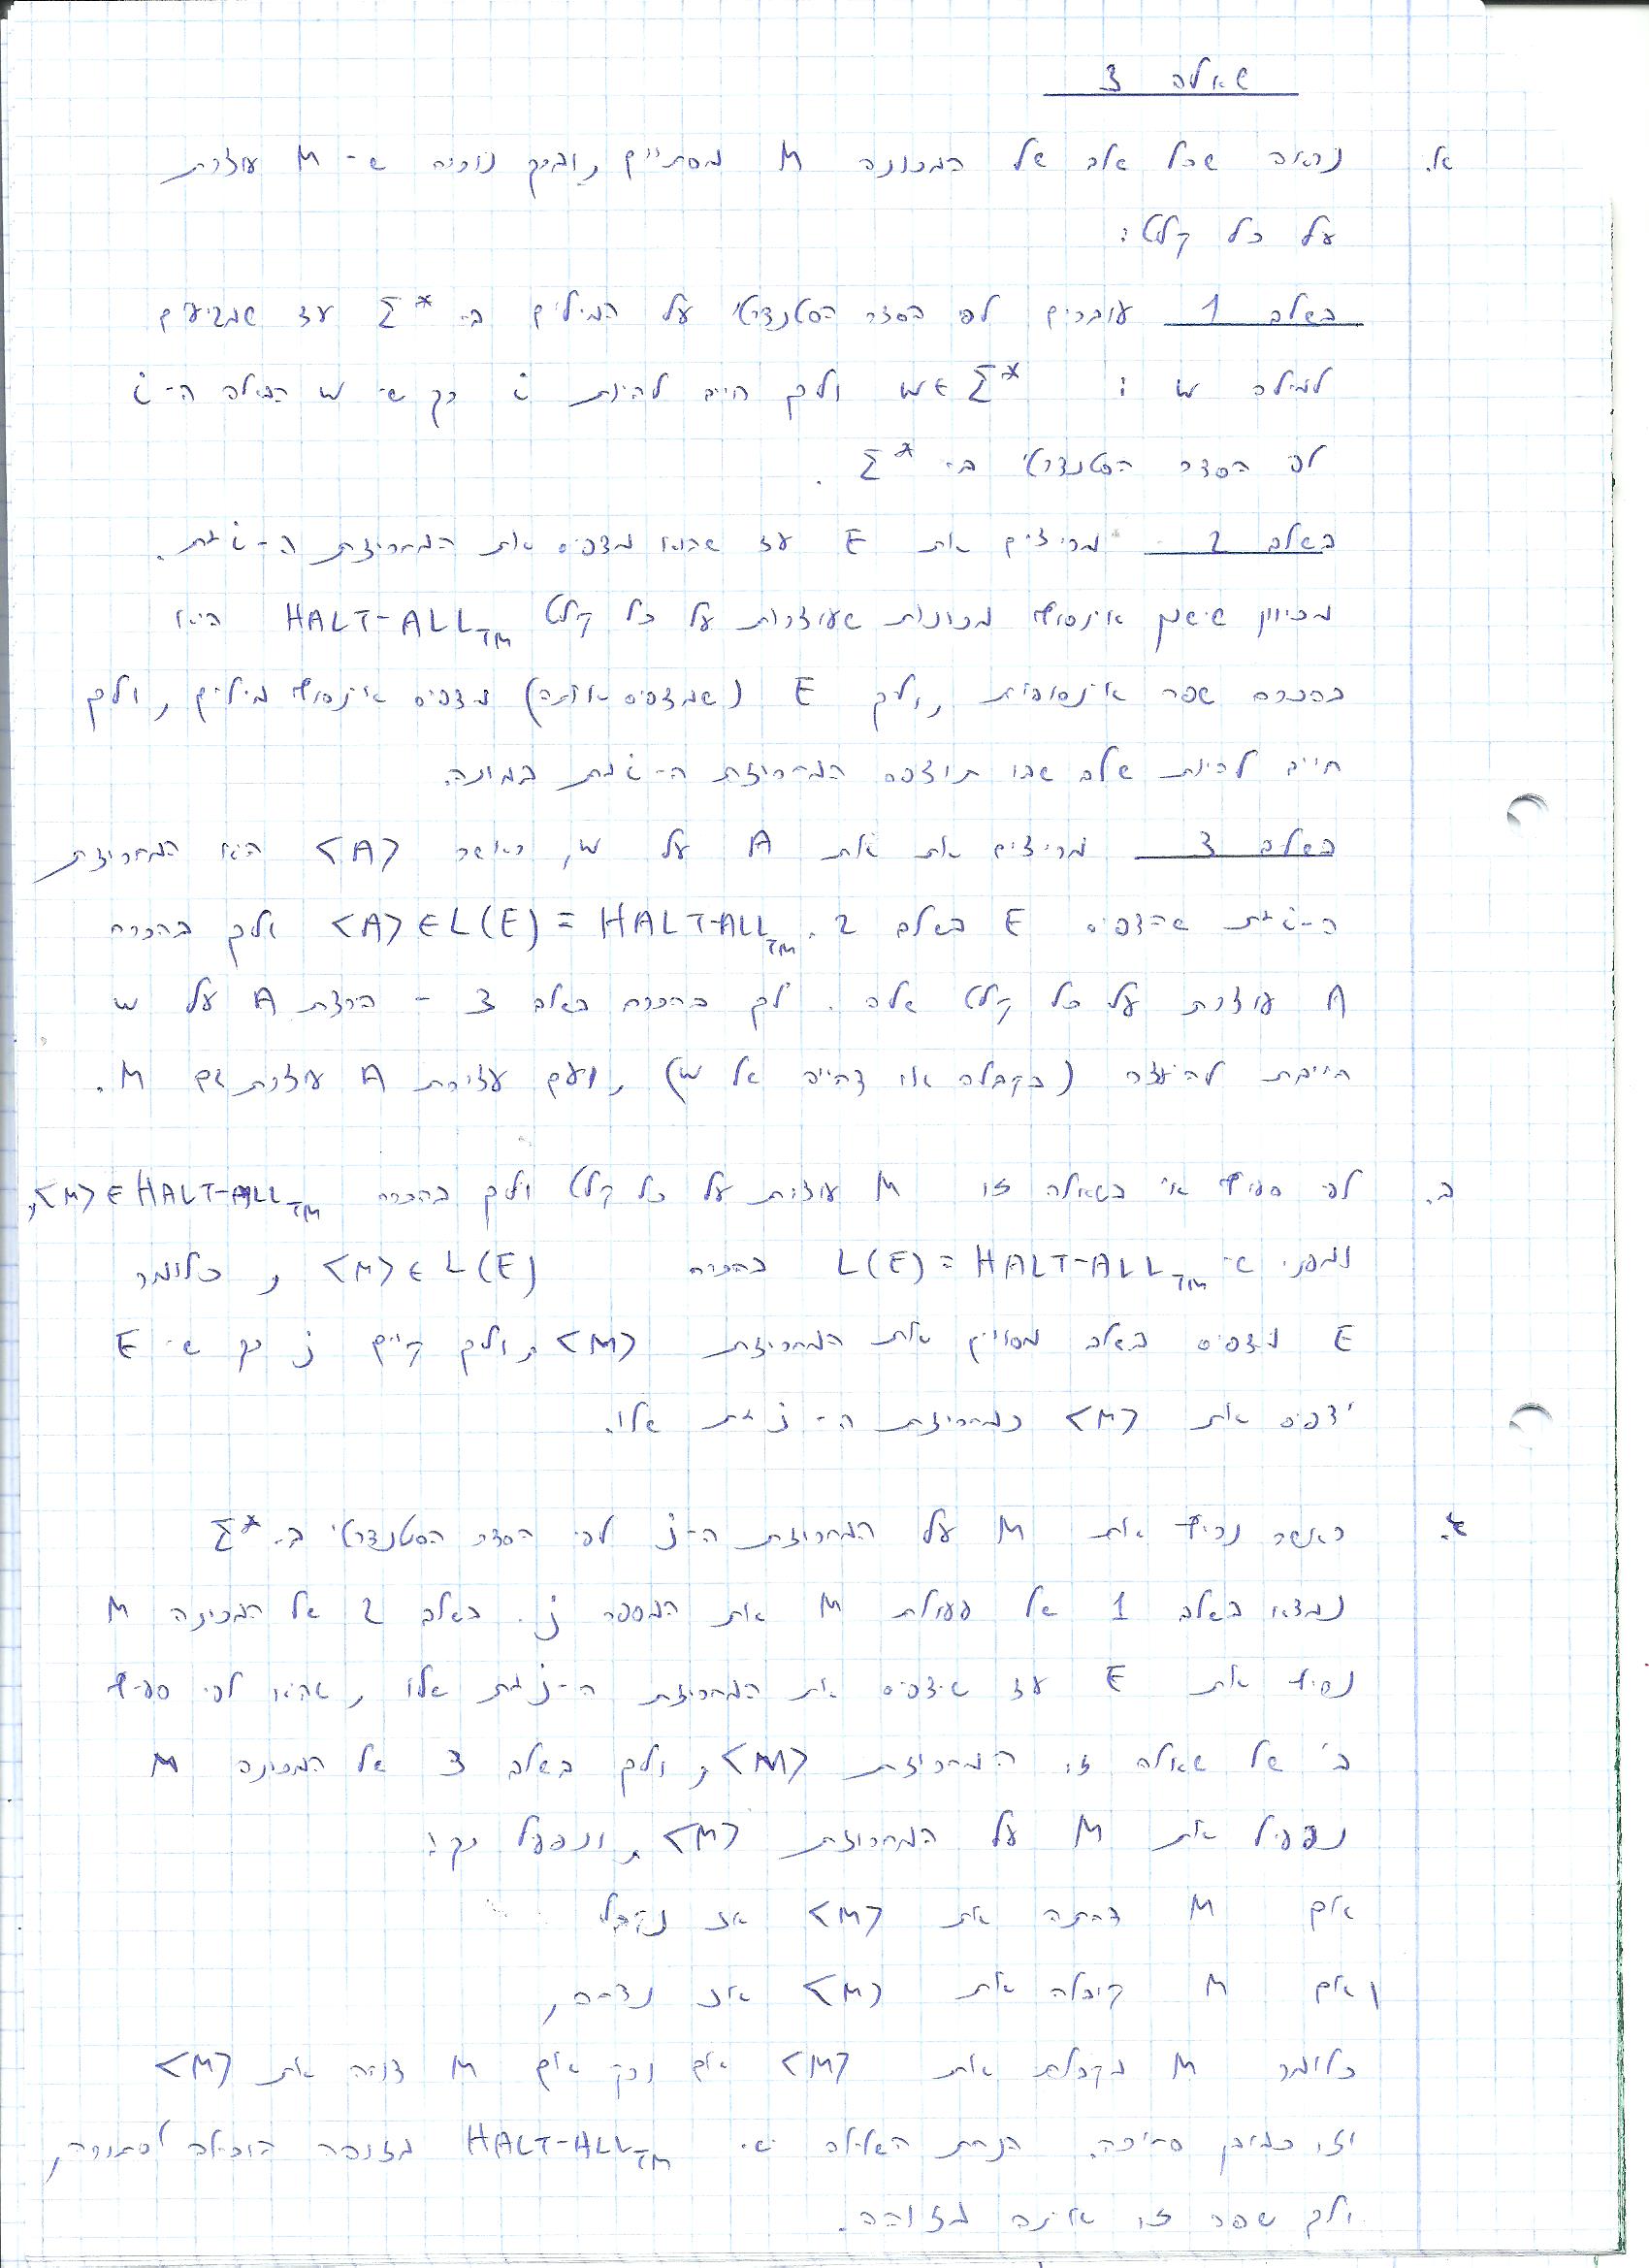 שאלה 3
א. נראה שכל שלב של המכונה M מסתיים, ובכך נוכיח ש- M עוצרת
על כל קלט:
בשלב 1 עוברים לפי הסדר הסטנדרטי על המילים ב- Σ* עד שמגיעים
למילה w: w∈Σ* ולכן חייב להיות i כך ש- w המילה ה-i
לפי הסדר הסטנדרטי ב- Σ*.
בשלב 2 מריצים את E עד שהוא מדפיס את המחרוזת ה-i-ית.
מכיוון שישנן אינסוף מכונות שעוצרות על כל קלט HALT-ALL_TM היא
בהכרח שפה אינסופית, ולכן E (שמדפיס אותה) מדפיס אינסוף מילים, ולכן
חייב להיות שלב שבו תודפס המחרוזת ה-i-ית במונה.
בשלב 3 מריצים את את A על w, כאשר <A> היא המחרוזת
ה-i-ית שהדפיס E בשלב 2. <A>∈L(E)=HALT-ALL_TM ולכן בהכרח
A עוצרת על כל קלט שלה. לכן בהכרח בשלב 3 - הרצת A על w
חייבת להיעצר (בקבלה או דחייה של w), ועם עצירת A עוצרת גם M.
ב. לפי סעיף א' בשאלה זו M עוצרת על כל קלט ולכן בהכרח <M>∈HALT-ALL_TM,
ומפני ש- L(E)=HALT-ALL_TM בהכרח <M>∈L(E), כלומר
E מדפיס בשלב מסויים את המחרוזת <M>, ולכן קיים j כך ש- E
ידפיס את <M> כמחרוזת ה-j-ית שלו.
ג. כאשר נריץ את M על המחרוזת ה-j לפי הסדר הסטנדרטי ב- Σ*
נמצא בשלב 1 של פעולת M את המספר j. בשלב 2 של המכונה M
נריץ את E עד שידפיס את המחרוזת ה-j-ית שלו, שהיא לפי סעיף
ב' של שאלה זו המחרוזת <M>, ולכן בשלב 3 של המכונה M
נפעיל את M על המחרוזת <M>, ונפעל כך:
אם M דחתה את <M> אז נקבל
ואם M קיבלה את <M> אז נדחה,
כלומר M מקבלת את <M> אם ורק אם M דוחה את <M>
וזו כמובן סתירה. הנחת השלילה ש- HALT-ALL_TM מזוהה הובילה לסתירה,
ולכן שפה זו אינה מזוהה.